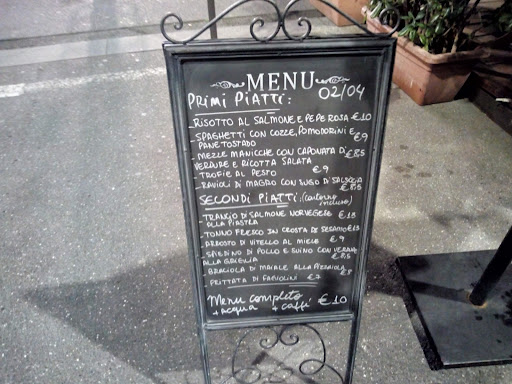 MENU
PRIMI PIATTI: 02/04
- RISOTTO AL SALMONE E PEPE ROSA €10
- SPAGHETTI CON COZZE, POMODORINI E €9
PANE TOSTADO
- MEZZE MANICCHE CON CAPONATA DI €8,5
VERDURE E RICOTTA SALATA
- TROFIE AL PESTO €9
- RAVIOLI DI MAGRO CON SUGO DI SALSICCIA
€8,5
SECONDI PIATTI: (contorno
incluso)
- TRANCIO DI SALMONE NORVEGESE €13
ALLA PIASTRA
- TONNO FRESCO IN CROSTA DI SESAMO €13
- ARROSTO DI VITELLO AL MIELE €9
- SPIEDINO DI POLLO E SUINO CON VERDURE
ALLA GRIGLIA €8,5
- BRACIOLA DI MAIALE ALLA PIZZAIOLA
€8
- FRITTATA DI FAGIOLINI €7
Menu completo €10
+ ACQUA + caffè